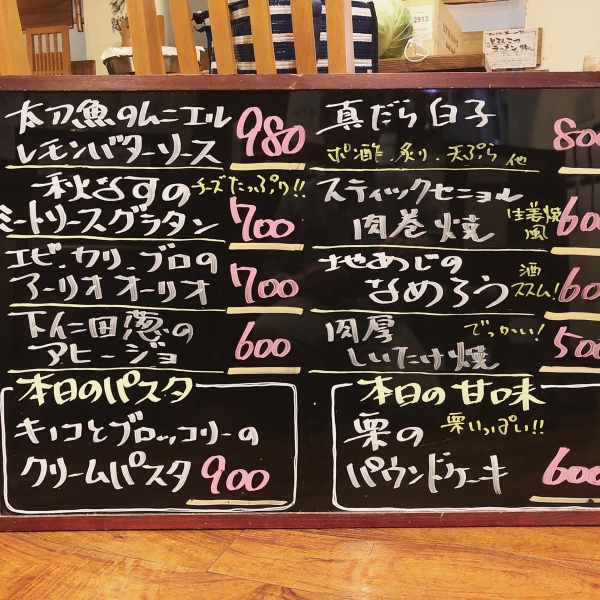 太刀魚のムニエル
レモンバターソース 980
秋なすの チーズたっぷり!!
ミートソースグラタン 700
エビ・カリ・ブロの
アーリオオーリオ 700
下仁田葱の
アヒージョ 600
本日のパスタ
キノコとブロッコリーの
クリームパスタ 900
真だら白子 800
ポン酢・炙り・天ぷら 他
スティックセニョール
肉巻焼 生姜焼風 600
地あじの
なめろう 酒ススム! 600
肉厚 でっかい!
しいたけ焼 500
本日の甘味
栗の 栗いっぱい!!
パウンドケーキ 600